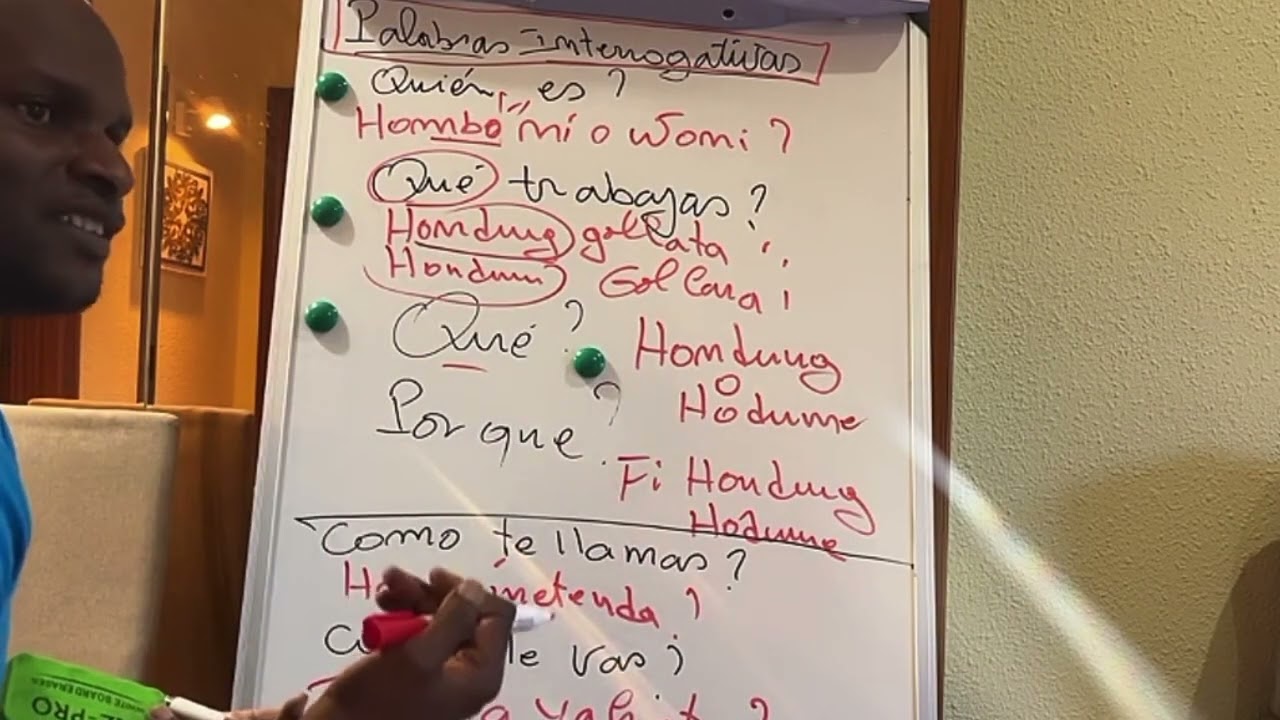 Palabras Interrogativas
Quién es?
Hombo mi o womi?
Qué trabajas?
Hondung gollata
Hondun Gollana
Qué? Homdung
o
Hodume
Por que?
Fi Hondung
Hodume
Como te llamas?
metenda?
vas